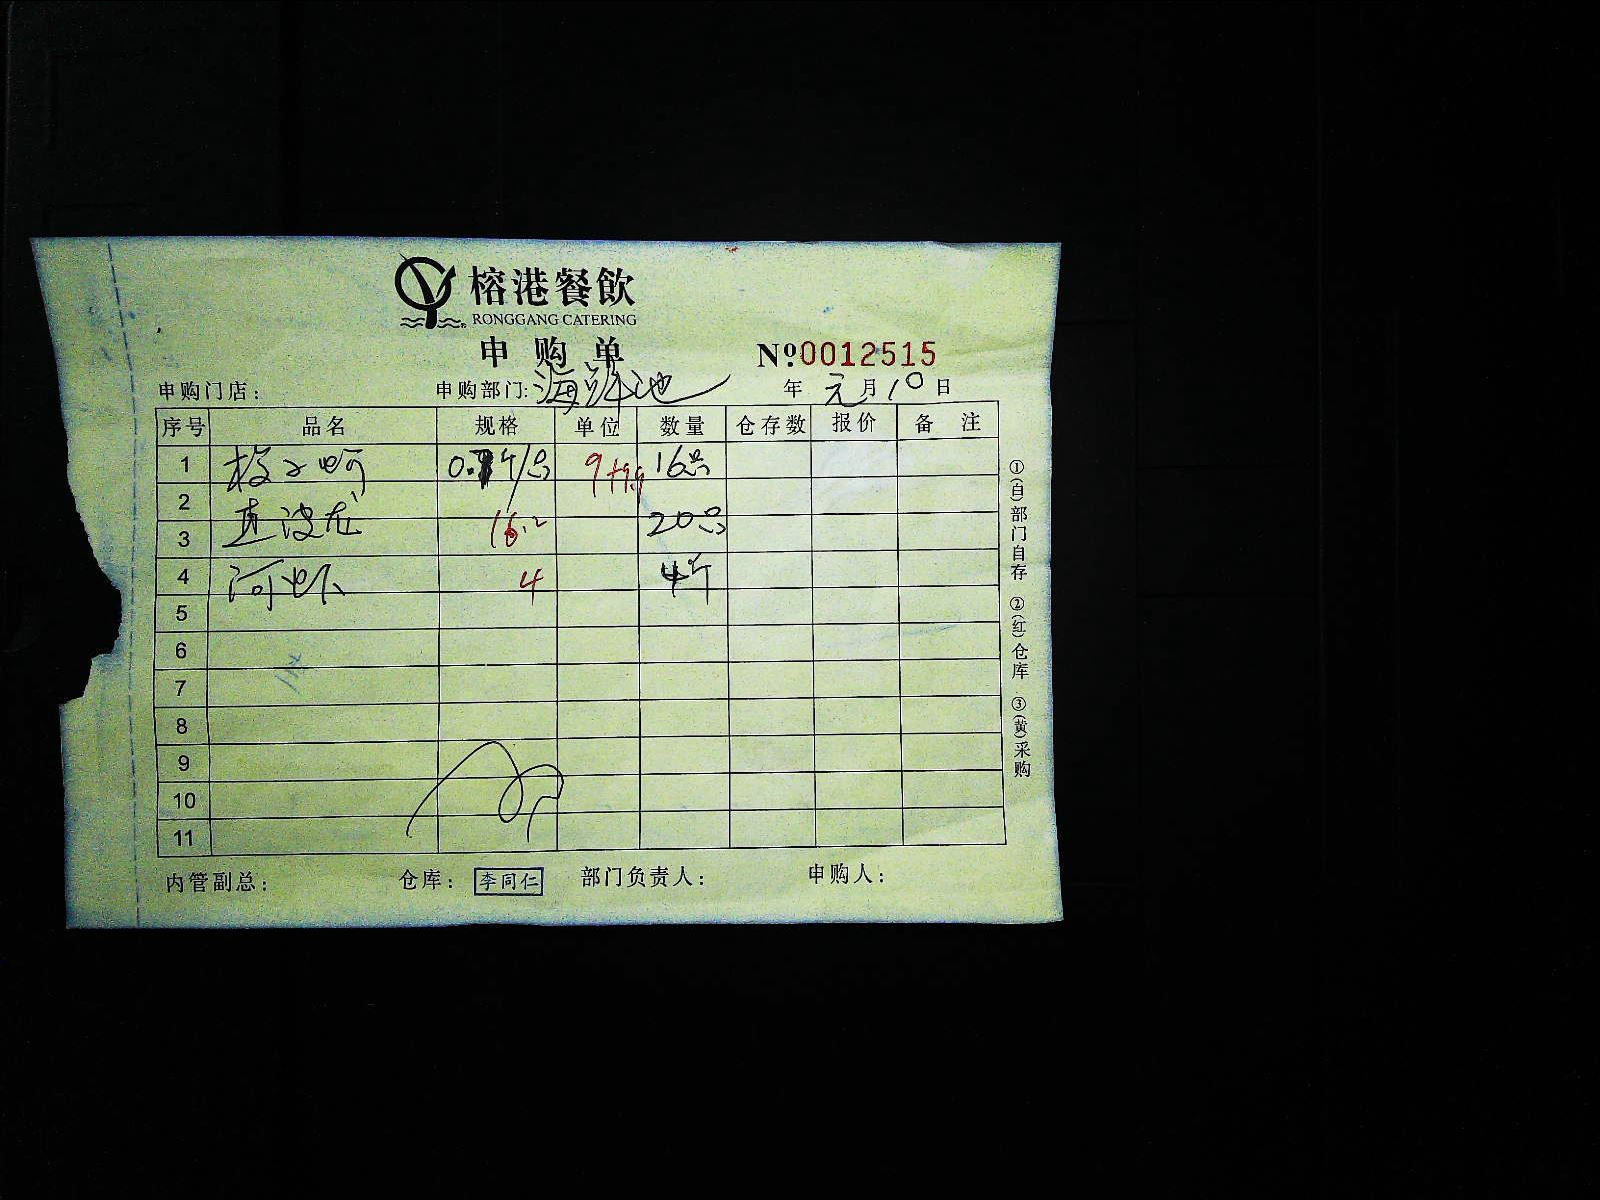 榕港餐飲
RONGGANG CATERING
申购单
Nº0012515
申购门店： 申购部门：海鲜池 年 元月10日
序号 品名 规格 单位 数量 仓存数 报价 备注
1 0. 斤/只 16只
2
3 波龙 16.2 20只
4 河虾 4 4斤
5
6
7
8
9
10
11
①(自)部门自存 ②(红)仓库 ③(黄)采购
内管副总： 仓库：李同仁 部门负责人： 申购人：